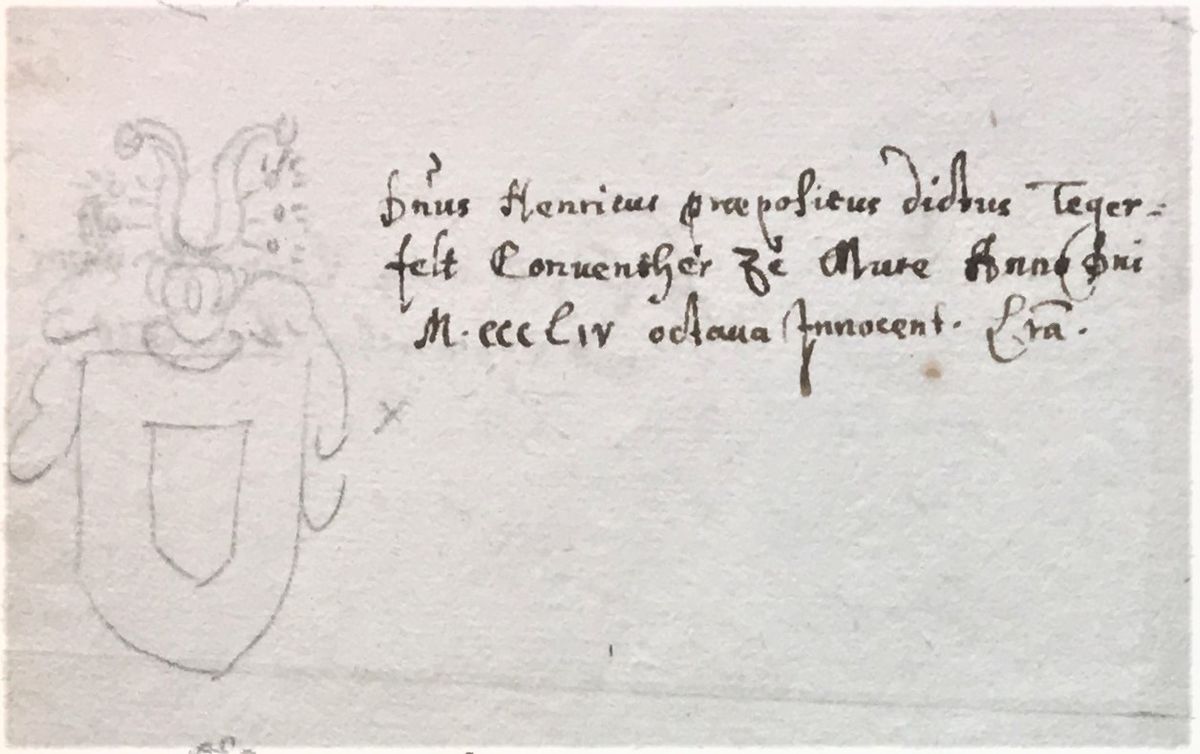 Dn̄us Henricus præpositus dictus Teger-
felt Conuenther zě Mure Anno Dni
M. CCC LIV octaua Innocent. Lrā.